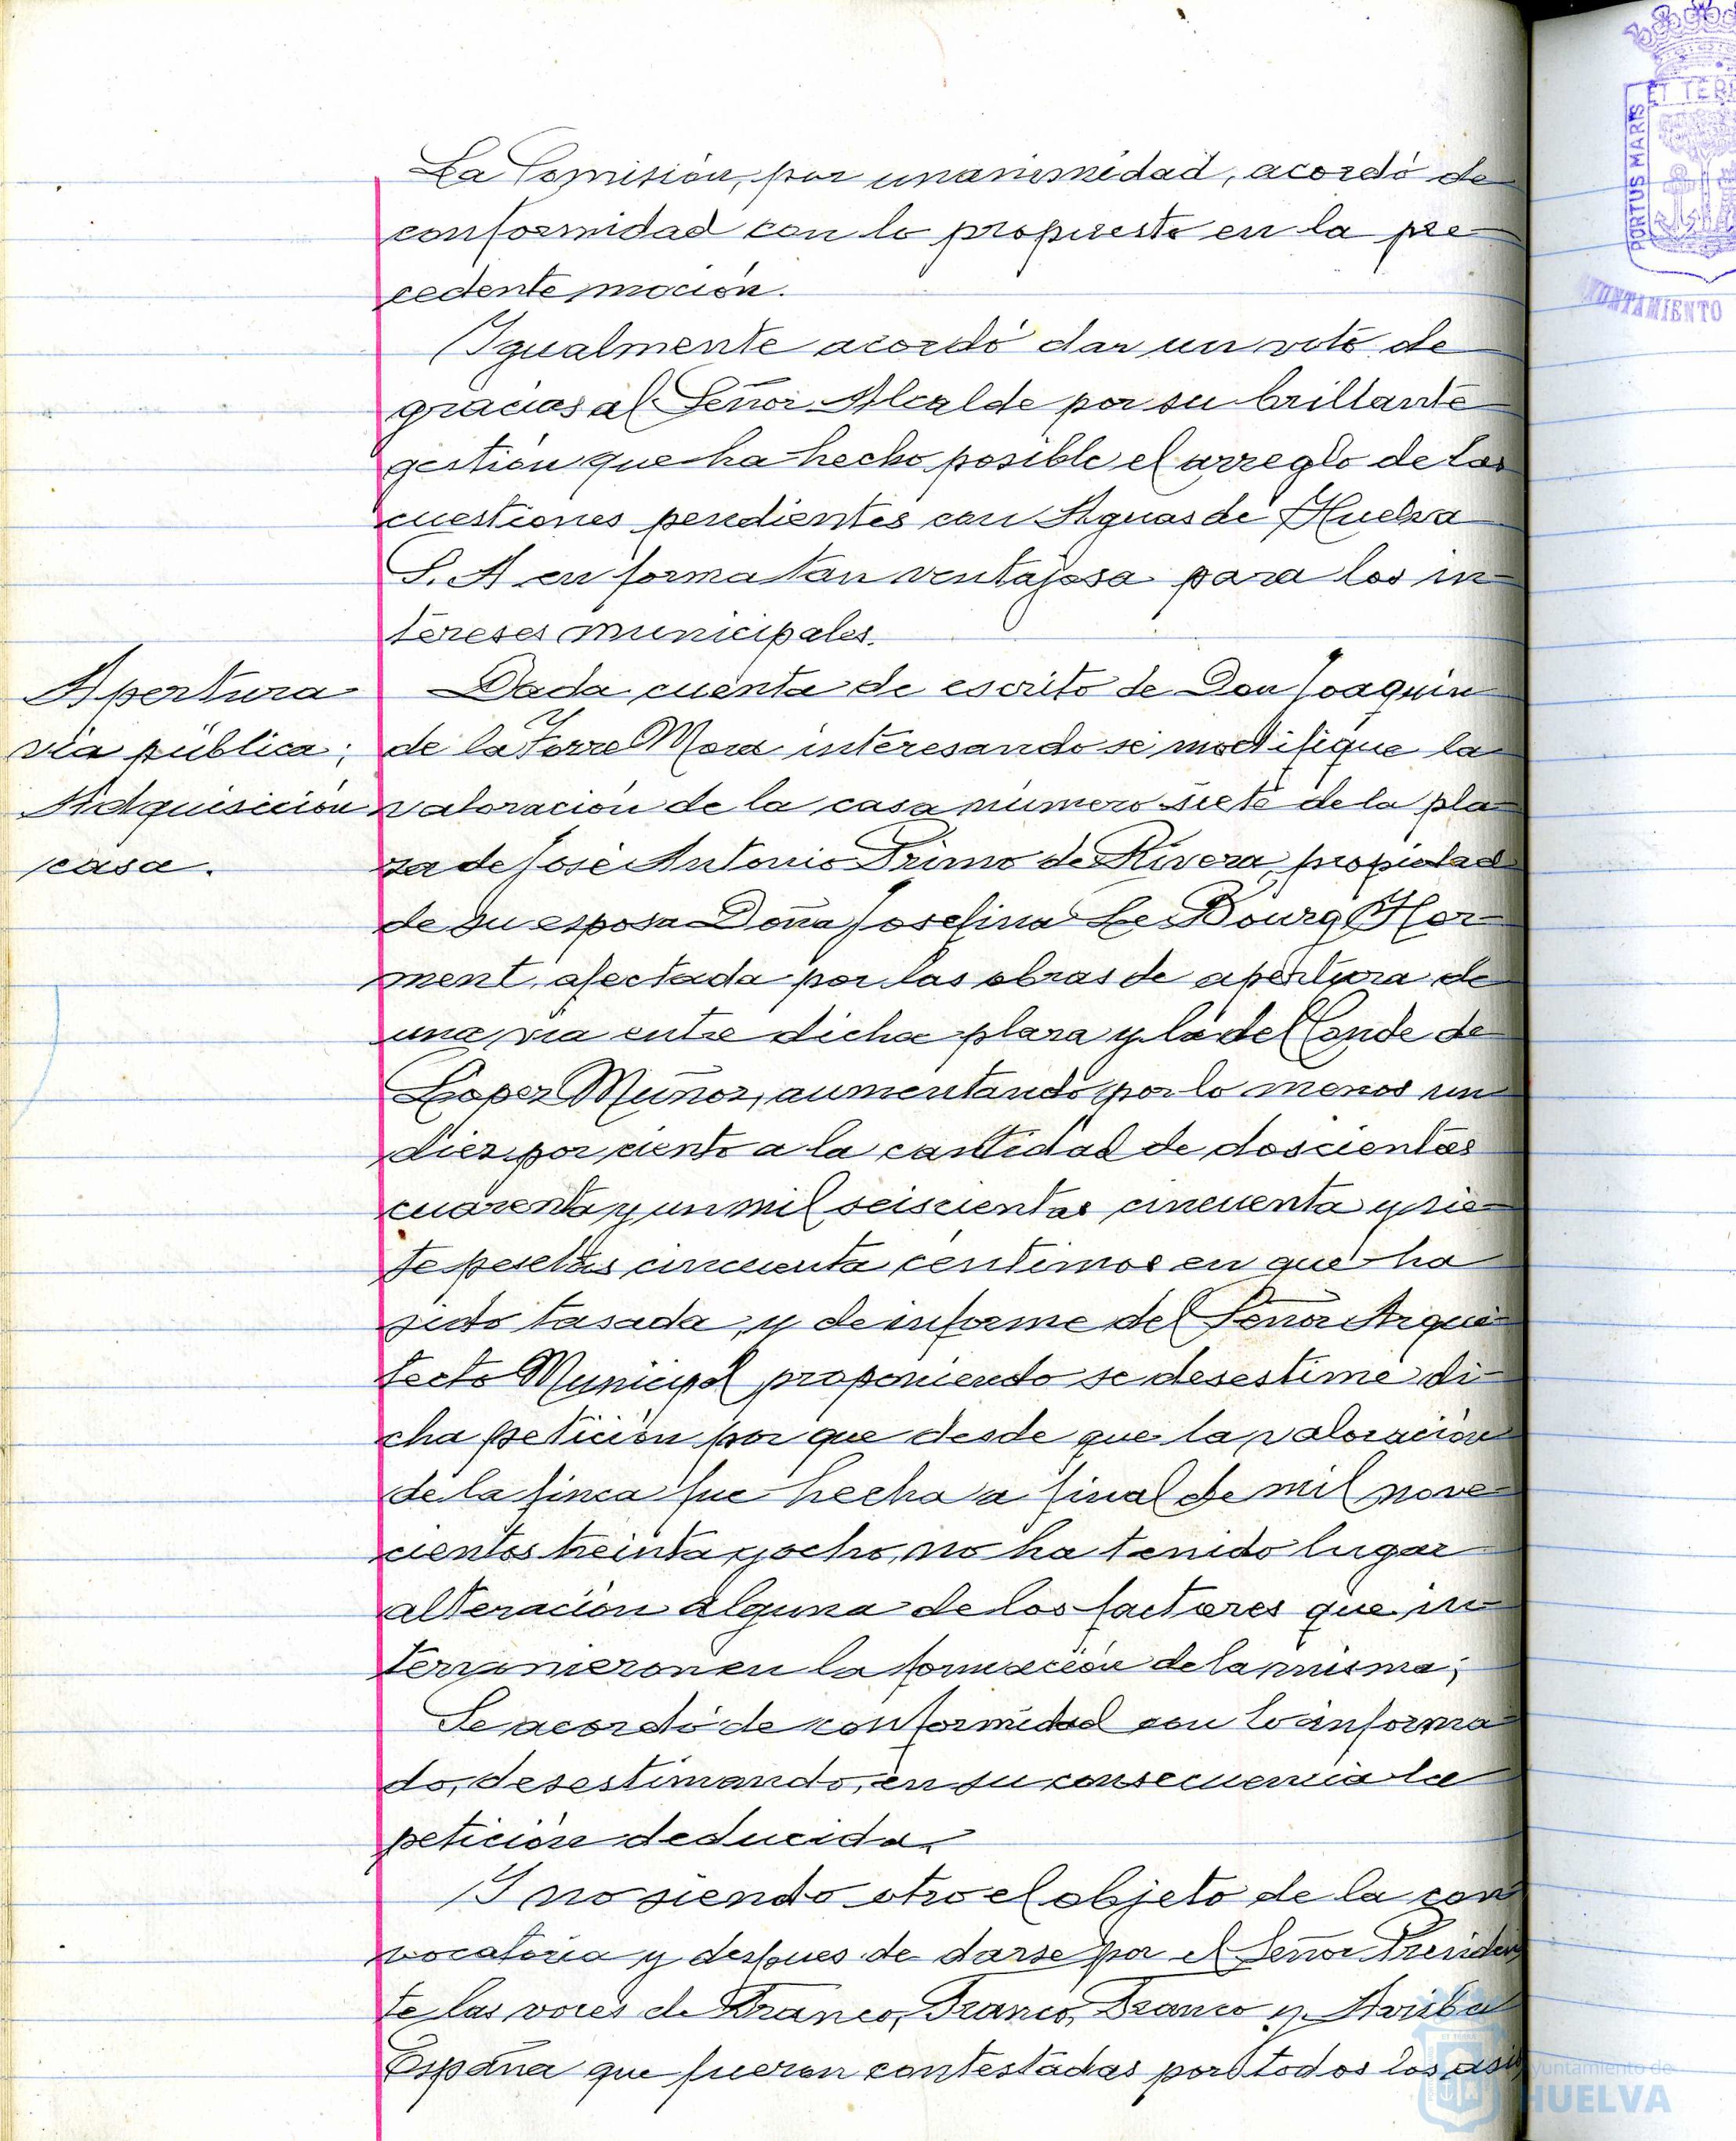 La Comisión, por unanimidad, acordó de
conformidad con lo propuesto en la pre
cedente moción.
Igualmente acordó dar un voto de
gracias al Señor Alcalde por su brillante
gestión que ha hecho posible el arreglo de las
cuestiones pendientes con Aguas de Huelva
S. A en forma tan ventajosa para los in
tereses municipales.
Apertura
vía pública;
Adquisición
casa.
Dada cuenta de escrito de Don Joaquín
de la Torre Mora interesando se modifique la
valoración de la casa número siete de la pla
za de José Antonio Primo de Rivera, propiedad
de su esposa Doña Josefina Le Bourg Hor
ment, afectada por las obras de apertura de
una vía entre dicha plaza y la del Conde de
López Muñoz, aumentando por lo menos un
diez por ciento a la cantidad de doscientas
cuarenta y un mil seiscientas cincuenta y sie
te pesetas cincuenta centimos en que ha
sido tasada, y de informe del Señor Arqui
tecto Municipal proponiendo se desestime di
cha petición por que desde que la valoración
de la finca fue hecha a final de mil nove
cientos treinta y ocho, no ha tenido lugar
alteración alguna de los factores que in
tervinieron en la formación de la misma;
Se acordó de conformidad con lo informa
do, desestimando, en su consecuencia la
petición deducida.
Y no siendo otro el objeto de la con
vocatoria y despues de darse por el Señor Presiden
te las voces de Franco, Franco, Franco y Arriba
España que fueron contestadas por todos los asis
PORTUS MARIS
ET TER
UNTAMIENTO
Ayuntamiento de
HUELVA